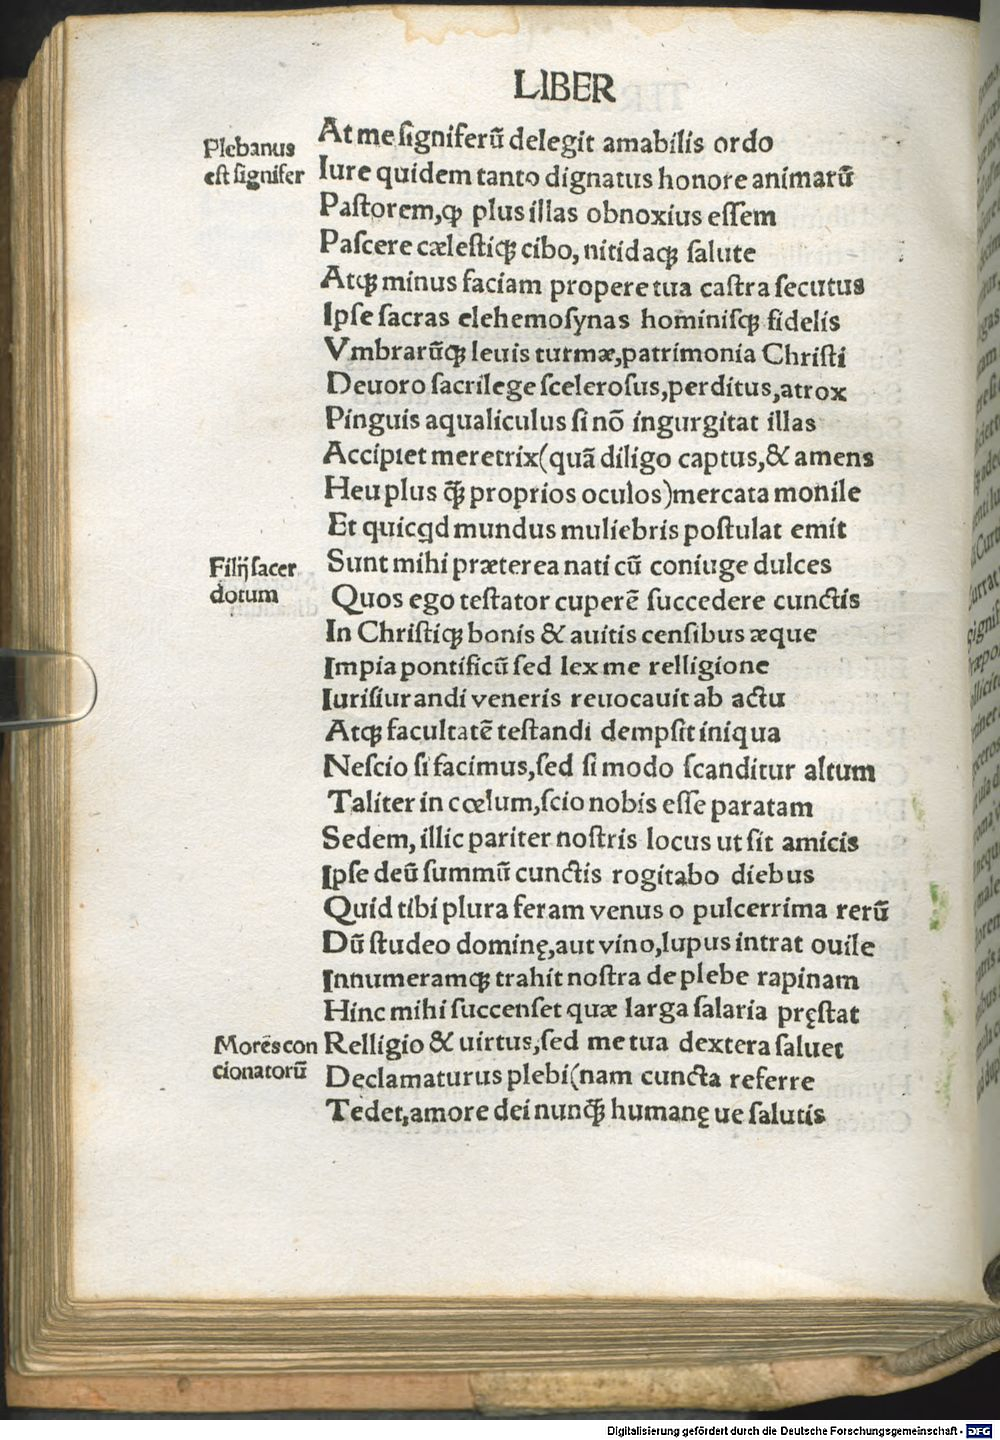 LIBER
Plebanus
est signifer
At me signiferū delegit amabilis ordo
Iure quidem tanto dignatus honore animarū
Pastorem, ꝙ plus illas obnoxius essem
Pascere cælestiqꝫ cibo, nitidaqꝫ salute
Atqꝫ minus faciam propere tua castra secutus
Ipse sacras elehemosynas hominisqꝫ fidelis
Vmbrarūqꝫ leuis turmæ, patrimonia Christi
Deuoro sacrilege scelerosus, perditus, atrox
Pinguis aqualiculus si nō ingurgitat illas
Accipiet meretrix (quā diligo captus, & amens
Heu plus q̄ꝫ proprios oculos) mercata monile
Et quicqd mundus muliebris postulat emit
Filij sacer
dotum
Sunt mihi præterea nati cū coniuge dulces
Quos ego testator cuperē succedere cunctis
In Christiqꝫ bonis & auitis censibus æque
Impia pontificū sed lex me relligione
Iurisiurandi veneris reuocauit ab actu
Atqꝫ facultatē testandi dempsit iniqua
Nescio si facimus, sed si modo scanditur altum
Taliter in cœlum, scio nobis esse paratam
Sedem, illic pariter nostris locus ut sit amicis
Ipse deū summū cunctis rogitabo diebus
Quid tibi plura feram venus o pulcerrima rerū
Dū studeo dominę, aut vino, lupus intrat ouile
Innumeramqꝫ trahit nostra de plebe rapinam
Hinc mihi succenset quæ larga salaria pręstat
Morēs con
cionatorū
Relligio & uirtus, sed me tua dextera saluet
Dęclamaturus plebi (nam cuncta referre
Tedet, amore dei nunq̄ꝫ humanę ue salutis
Digitalisierung gefördert durch die Deutsche Forschungsgemeinschaft - DFG